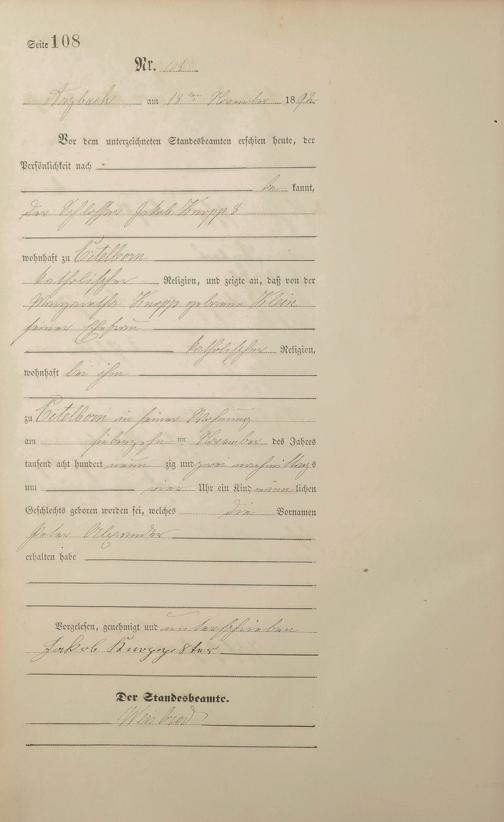 Seite 108
Nr. 108
Arzbach am 18ten November 1892
Vor dem unterzeichneten Standesbeamten erschien heute, der
Persönlichkeit nach
be kannt,
der Schlosser Jakob Knopp 8
wohnhaft zu Eitelborn
katholischer Religion, und zeigte an, daß von der
Margaretha Knopp geborene Klein
seiner Ehefrau
katholischer Religion,
wohnhaft bei ihm
zu Eitelborn in seiner Wohnung
am siebzehn ten November des Jahres
tausend acht hundert neun zig und zwei nachmittags
um vier Uhr ein Kind männ lichen
Geschlechts geboren worden sei, welches die Vornamen
Peter Alexander
erhalten habe
Vorgelesen, genehmigt und unterschrieben
Jakob Knopp 8ter
Der Standesbeamte.
Weisbrod